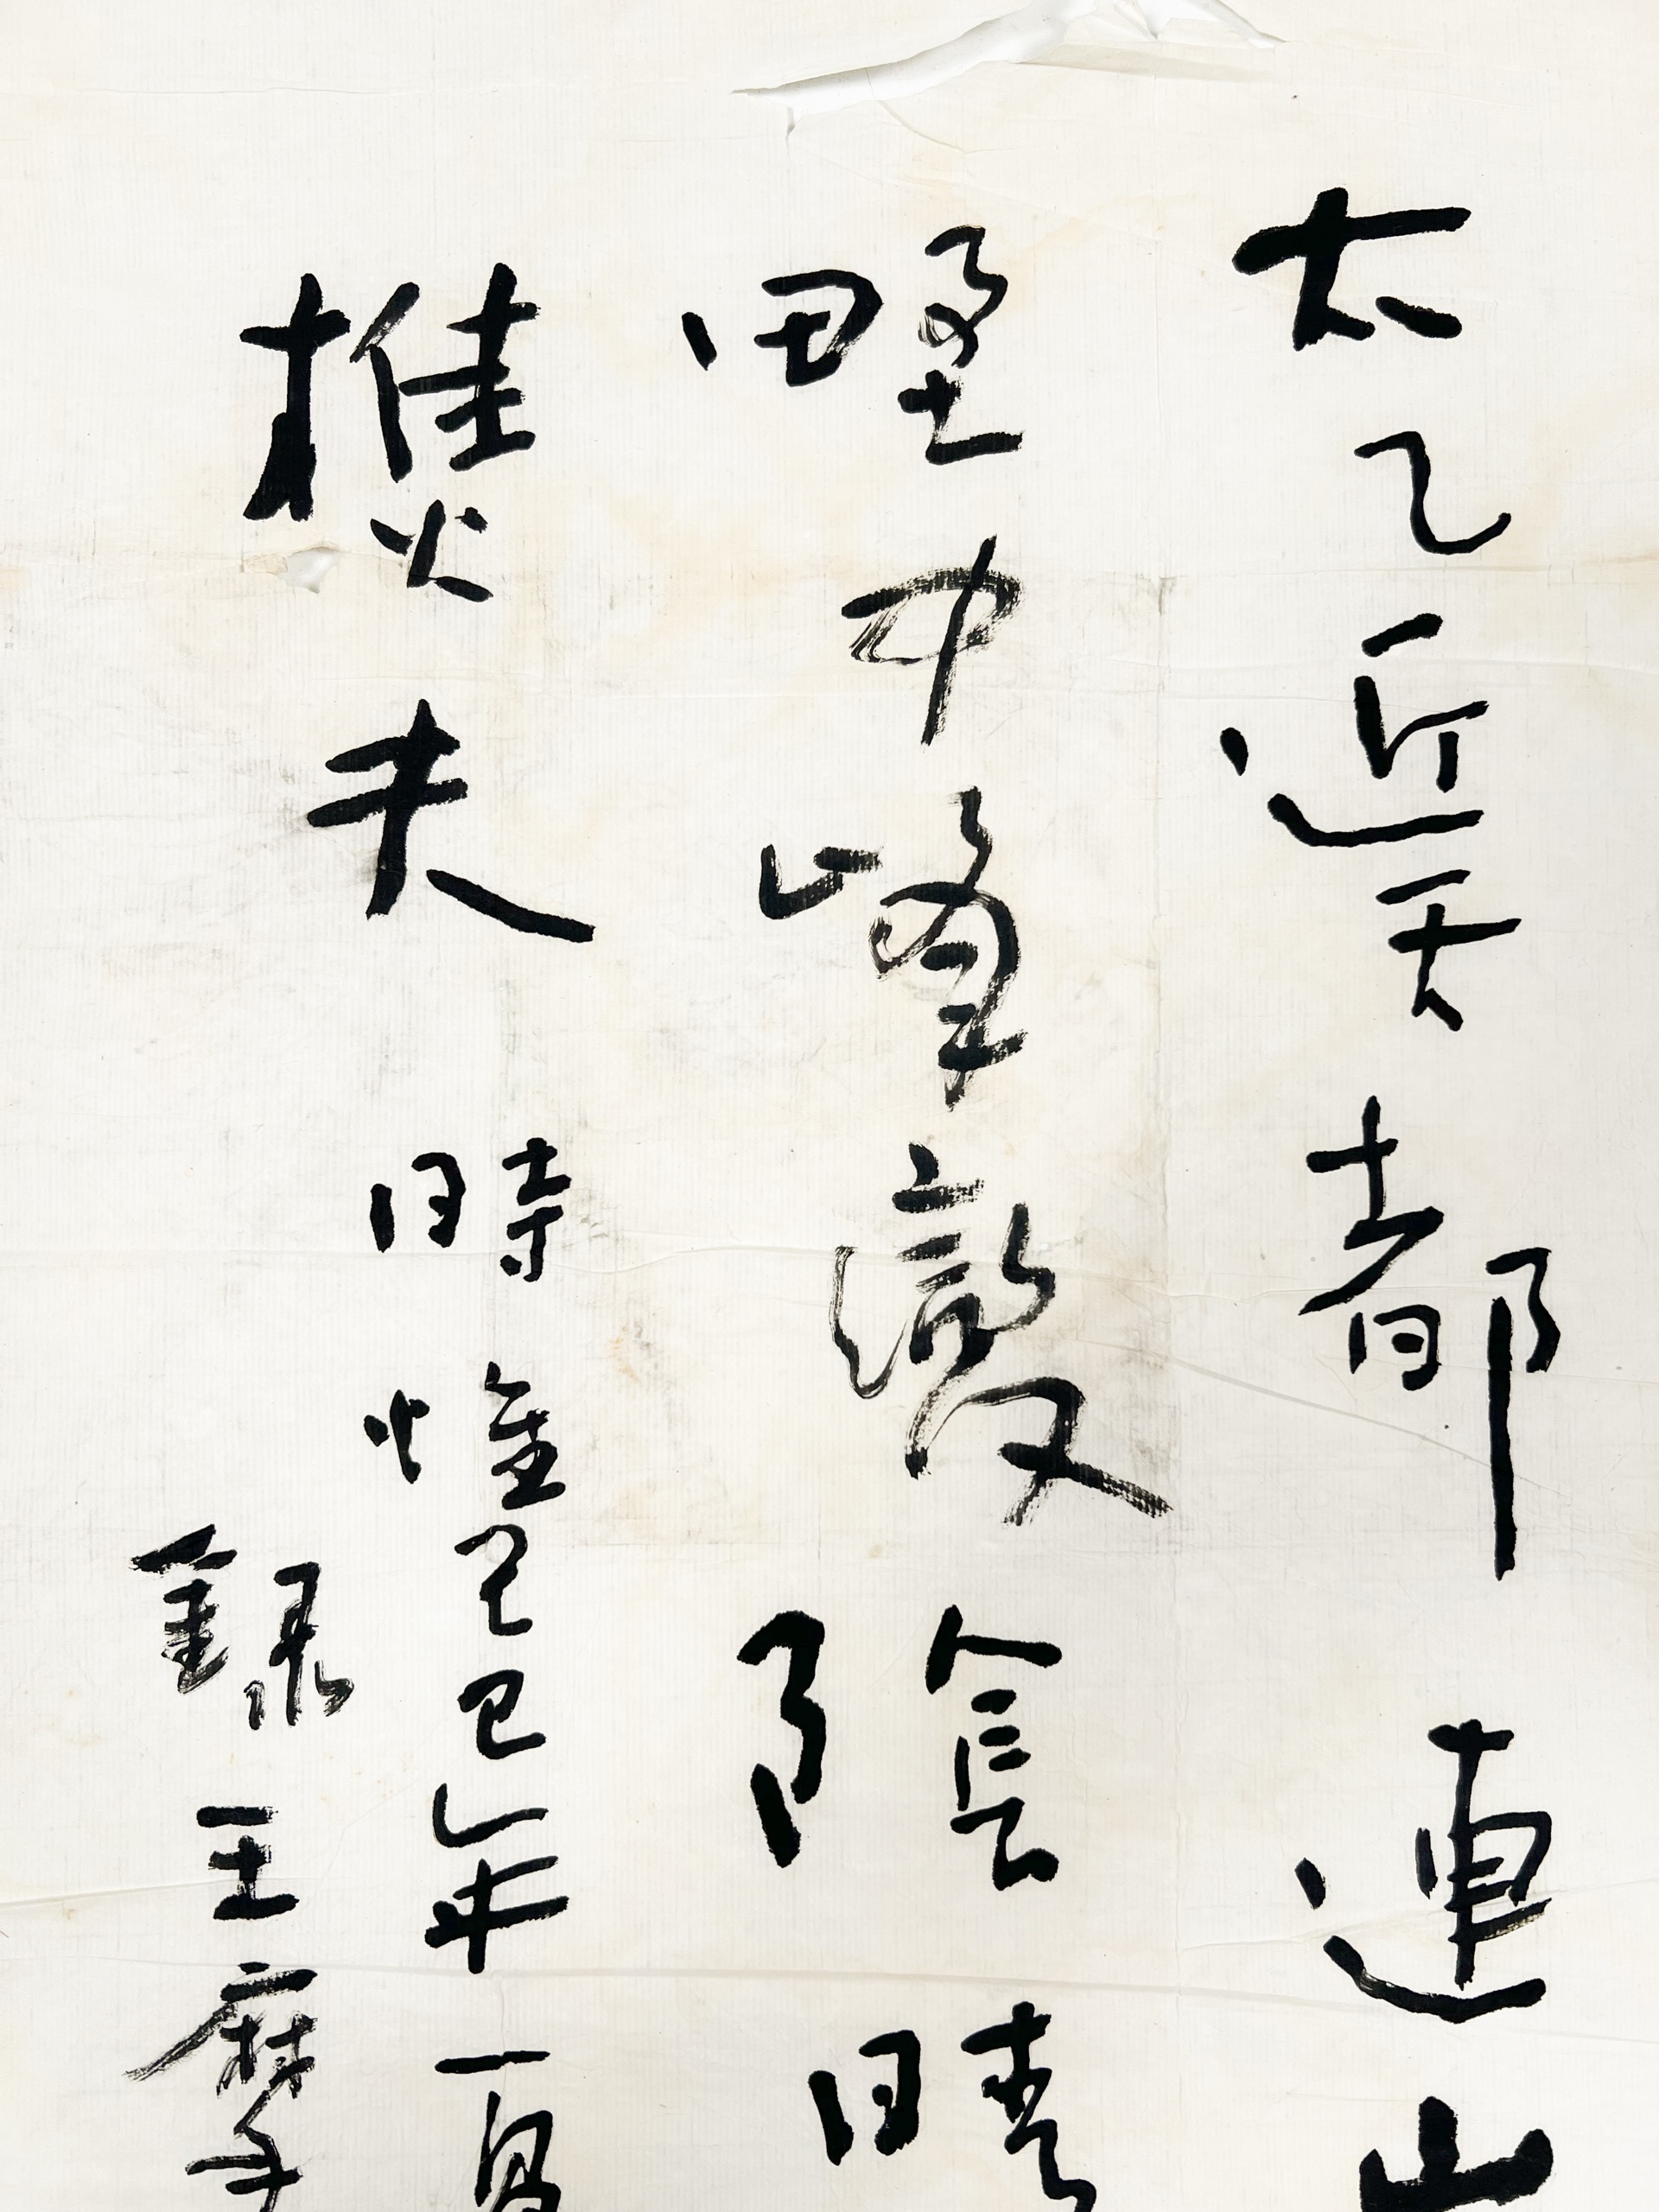 太乙近天都連山
野中峰變陰晴
樵夫 時惟己巳年一
錄王摩